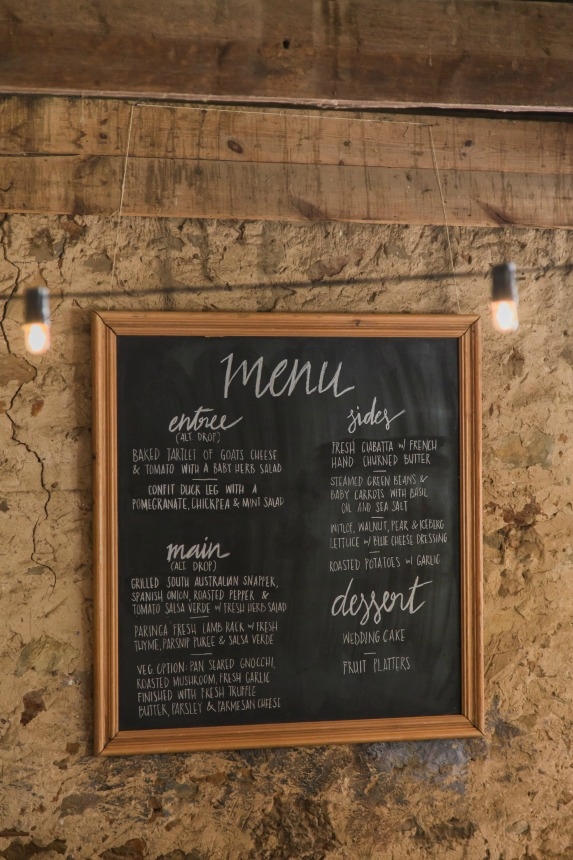 menu
entree
(ALT. DROP)
BAKED TARTLET OF GOATS CHEESE
& TOMATO WITH A BABY HERB SALAD
CONFIT DUCK LEG WITH A
POMEGRANATE, CHICKPEA & MINT SALAD
main
(ALT DROP)
GRILLED SOUTH AUSTRALIAN SNAPPER,
SPANISH ONION, ROASTED PEPPER &
TOMATO SALSA VERDE W/ FRESH HERB SALAD
PARINGA FRESH LAMB RACK W/ FRESH
THYME, PARSNIP PUREE & SALSA VERDE
VEG. OPTION: PAN SEARED GNOCCHI,
ROASTED MUSHROOM, FRESH GARLIC
FINISHED WITH FRESH TRUFFLE
BUTTER, PARSLEY & PARMESAN CHEESE
sides
FRESH CIABATTA W/ FRENCH
HAND CHURNED BUTTER
STEAMED GREEN BEANS &
BABY CARROTS WITH BASIL
OIL AND SEA SALT
WITLOF, WALNUT, PEAR & ICEBURG
LETTUCE W/ BLUE CHEESE DRESSING
ROASTED POTATOES W/ GARLIC
dessert
WEDDING CAKE
FRUIT PLATTERS